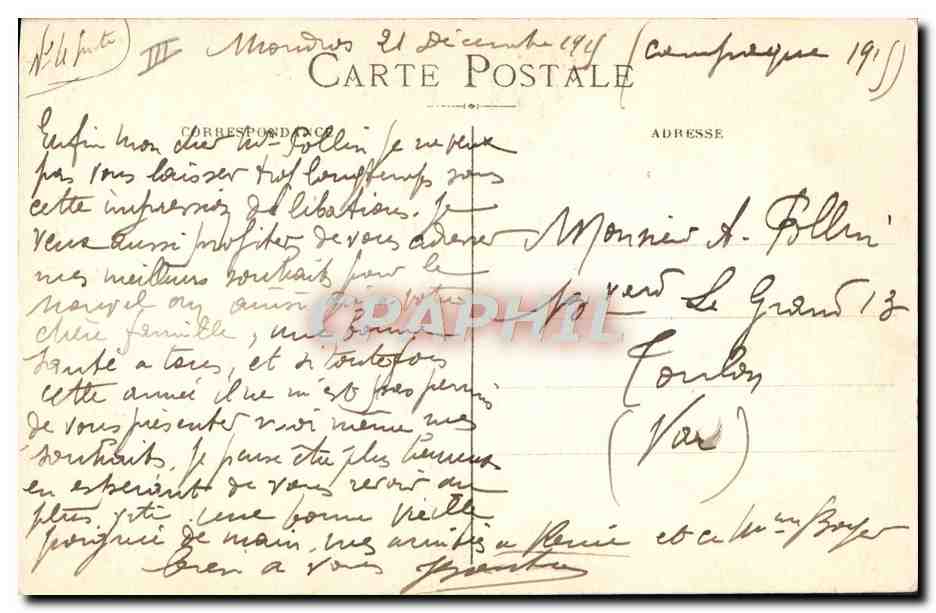 (No 4 Suite) III Mondros 21 Décembre 1915 (Campagne 1915)
CARTE POSTALE
CORRESPONDANCE
ADRESSE
Enfin mon cher Mr Pollin je ne veux
pas vous laisser trop longtemps sous
cette impression de libations. Je
veux aussi profiter de vous adresser
mes meilleurs souhaits pour le
nouvel an ainsi qu'à votre
chère famille, une bonne
santé a tous, et si toutefois
cette année il ne m'est pas permis
de vous présenter moi même mes
souhaits, je pense être plus heureux
en espérant de vous revoir au
plus vite une bonne vieille
poignée de main, mes amitiés a René et a Mme Boyer
bien a vous
Monsieur A. Pollin
Le Grand 13
Toulon
(Var)
CPAPHIL